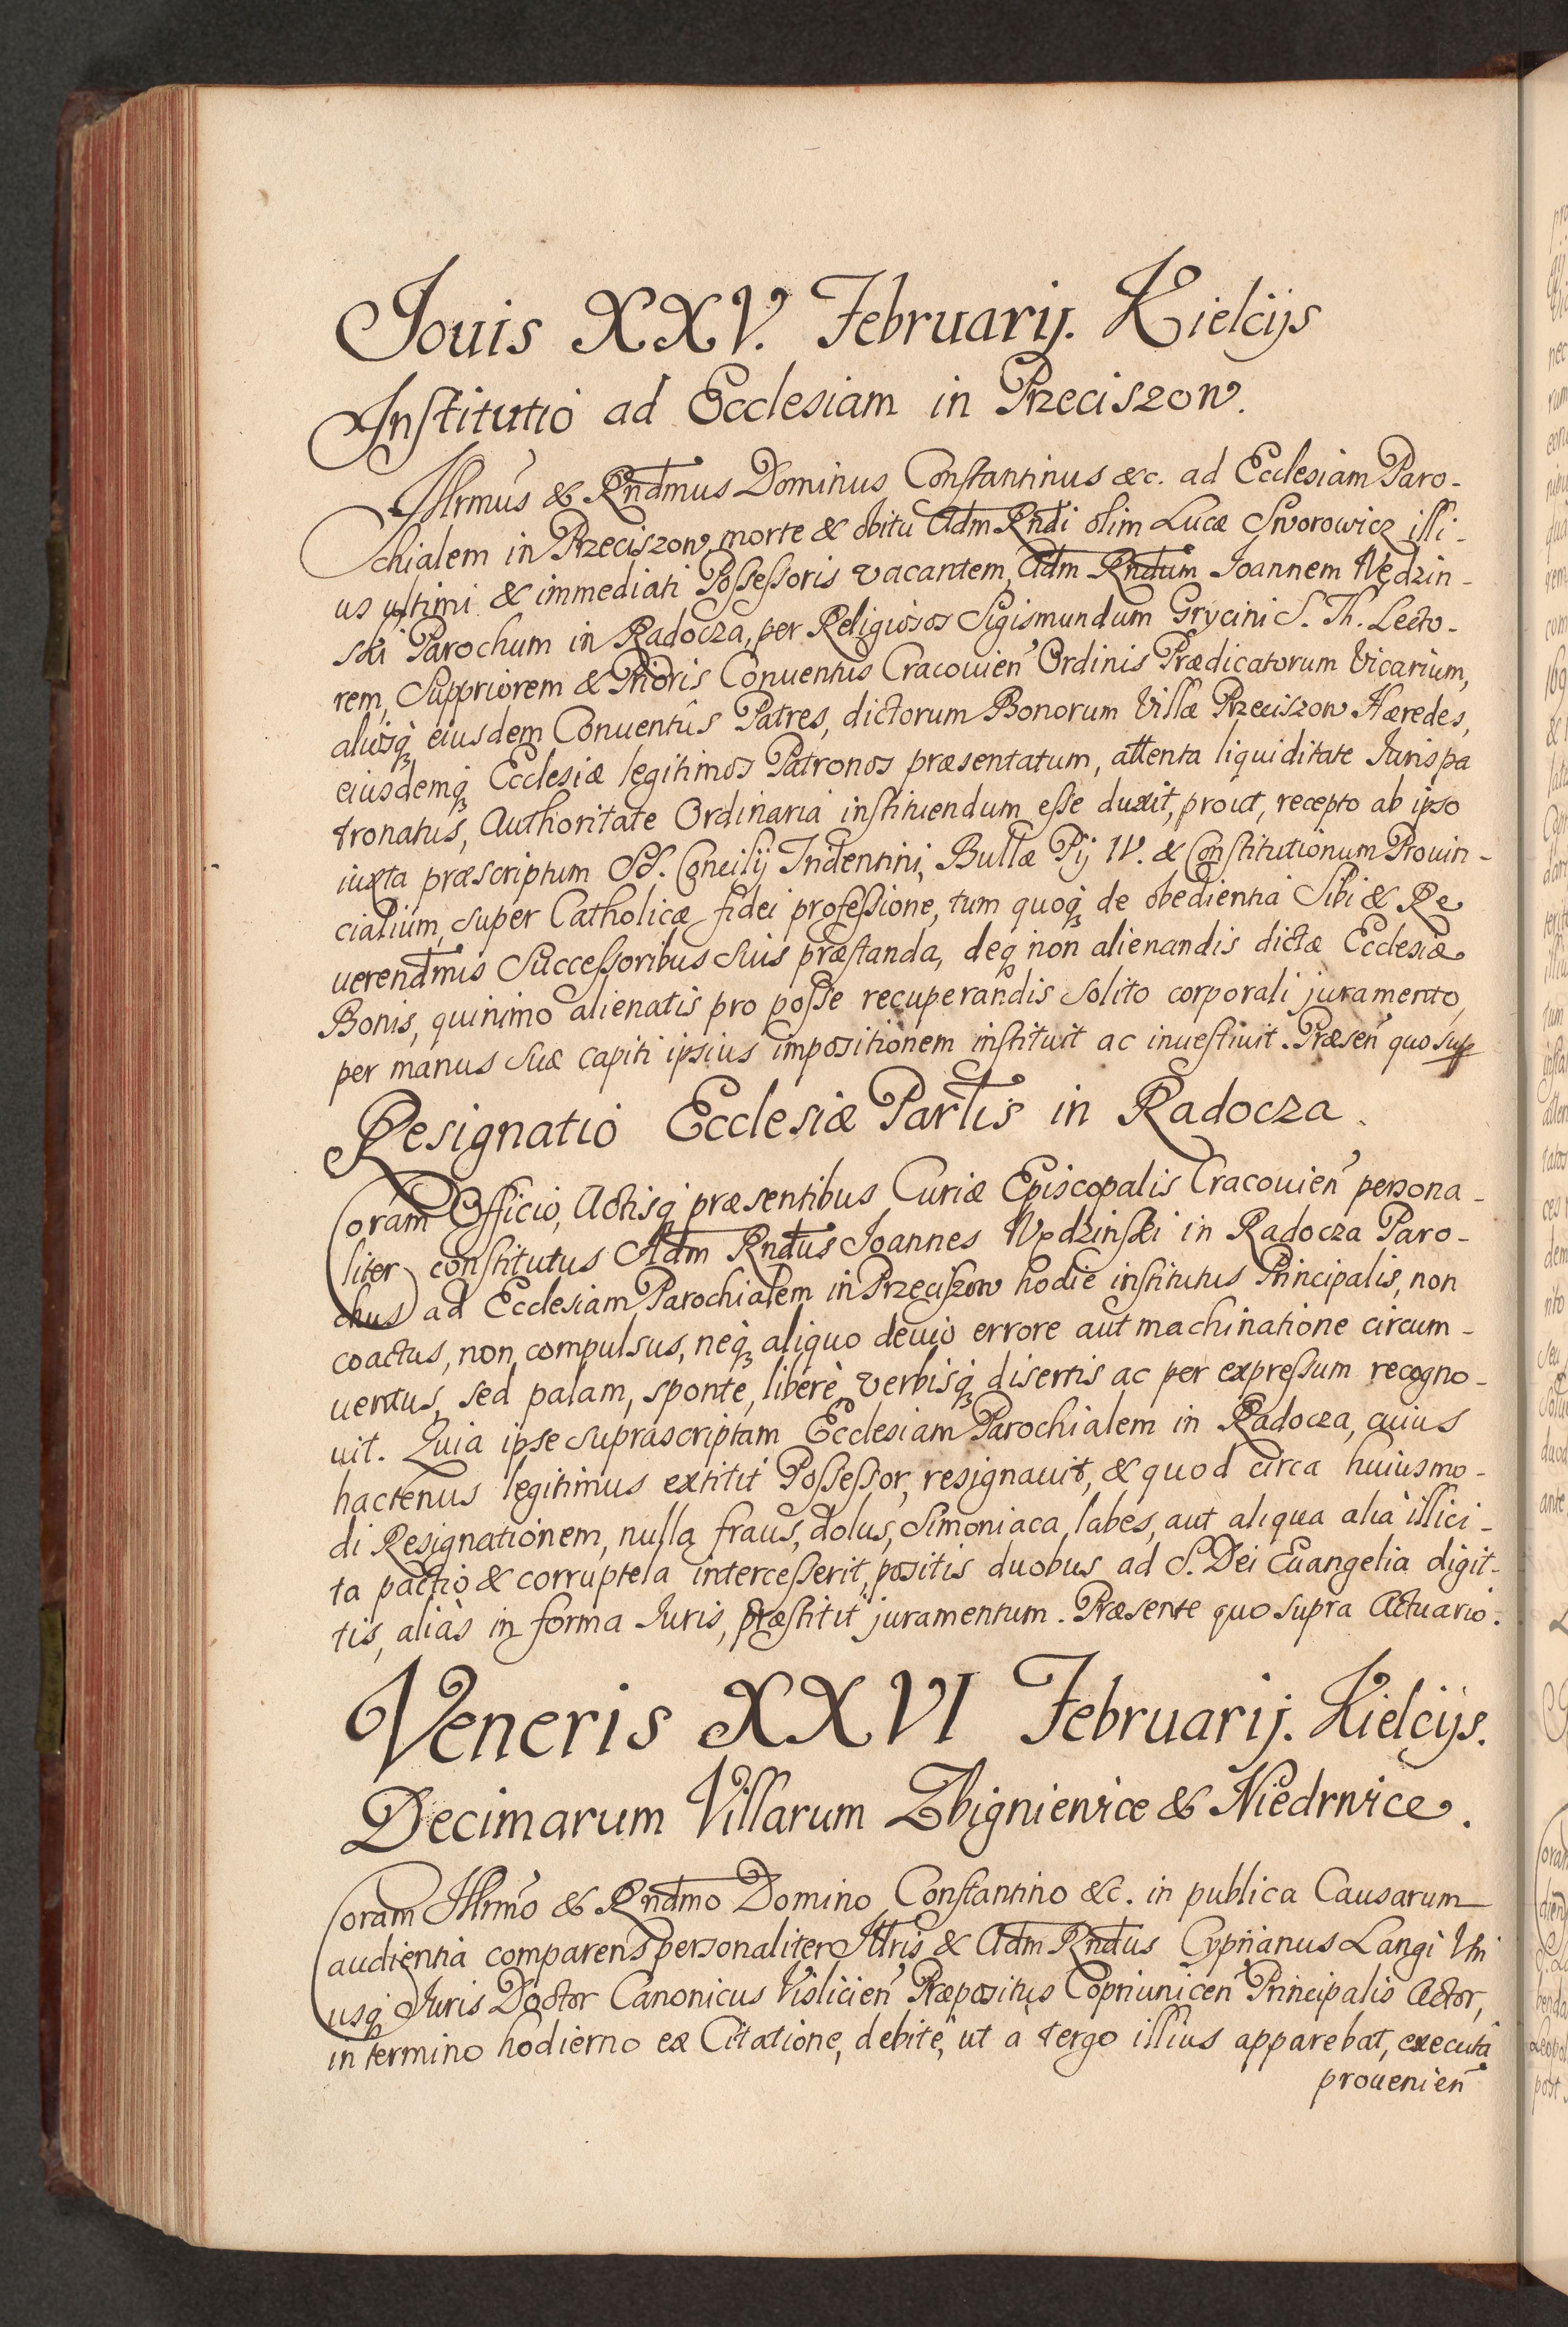 Iouis XXV. Februarij. Kielcijs
Institutio ad Ecclesiam in Przeciszow.
Illrmus & Rndmus Dominus Constantinus &c. ad Ecclesiam Paro-
chialem in Przeciszow, morte & obitu Adm Rndi olim Lucæ Sworowicz illi-
us ultimi & immediati Possessoris vacantem, Adm Rndum Ioannem Wędzin-
ski Parochum in Radocza, per Religiosos Sigismundum Grycini S. Th. Lecto-
rem, Suppriorem & Prioris Conuentus Cracouien Ordinis Prædicatorum Vicarium,
aliosq eiusdem Conuentûs Patres, dictorum Bonorum Villæ Przeciszow Hæredes,
eiusdemq Ecclesiæ legitimos Patronos præsentatum, attenta liquiditate Iurispa
tronatus, Authoritate Ordinaria instituendum esse duxit, prout, recepto ab ipso
iuxta præscriptum SS. Concilij Tridentini, Bullæ Pij IV. & Constitutionum Prouin-
cialium, super Catholicæ fidei professione, tum quoq de obedientia Sibi & Re
uerendmis Successoribus Suis præstanda, deq non alienandis dictæ Ecclesiæ
Bonis, quinimo alienatis pro posse recuperandis solito corporali juramento,
per manus suæ capiti ipsius impositionem instituit ac inuestiuit. Præsen quo sup
Resignatio Ecclesiæ Partis in Radocza.
Coram Officio, Actisq præsentibus Curiæ Episcopalis Cracouien persona-
liter constitutus Adm Rndus Ioannes Wędzinski in Radocza Paro-
chus ad Ecclesiam Parochialem in Przeciszow hodie institutus Principalis, non
coactus, non compulsus, neq aliquo deuio errore aut machinatione circum-
uentus, sed palam, sponte, liberè verbisq disertis ac per expressum recogno-
uit. Quia ipse suprascriptam Ecclesiam Parochialem in Radocza, cuius
hactenus legitimus extitit Possessor, resignauit, & quod circa huiusmo-
di Resignationem, nulla fraus, dolus, Simoniaca labes, aut aliqua alia illici-
ta pactio & corruptela intercesserit, positis duobus ad S. Dei Euangelia digit-
tis, aliàs in forma Iuris, præstitit juramentum. Præsente quo supra Actuario.
Veneris XXVI Februarij. Kielcijs.
Decimarum Villarum Zbigniewice & Niedrwice.
Coram Illrmo & Rndmo Domino Constantino &c. in publica Causarum
audientia comparens personaliter Illris & Adm Rndus Cyprianus Langi Vtri
usq Iuris Doctor Canonicus Vislicien Præpositus Copriunicen Principalis Actor,
in termino hodierno ex Citatione, debitè, ut a tergo illius apparebat, executa
prouenien